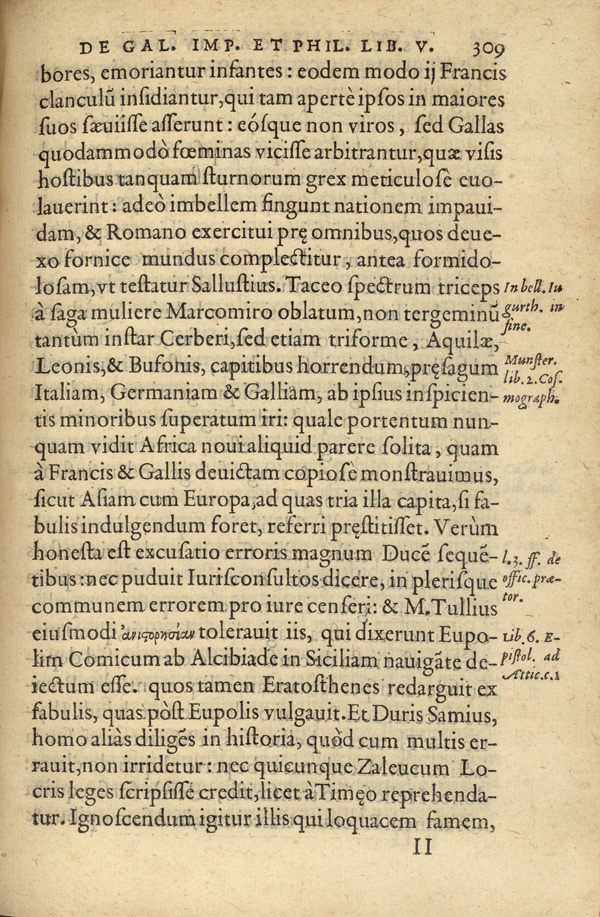 DE GAL. IMP. ET PHIL. LIB. V. 309
bores, emoriantur infantes: eodem modo ij Francis
clanculũ insidiantur, qui tam apertè ipsos in maiores
suos sæuiisse asserunt: eósque non viros, sed Gallas
quodammodò fœminas vicisse arbitrantur, quæ visis
hostibus tanquam sturnorum grex meticulosè euo-
lauerint: adeò imbellem fingunt nationem impaui-
dam, & Romano exercitui prę omnibus, quos deue-
xo fornice mundus complectitur, antea formido-
losam, vt testatur Sallustius. Taceo spectrum triceps
à saga muliere Marcomiro oblatum, non tergeminũ
tantùm instar Cerberi, sed etiam triforme, Aquilæ,
Leonis, & Bufonis, capitibus horrendum, pręsagum
Italiam, Germaniam & Galliam, ab ipsius inspicien-
tis minoribus superatum iri: quale portentum nun-
quam vidit Africa noui aliquid parere solita, quam
à Francis & Gallis deuictam copiosè monstrauimus,
sicut Asiam cum Europa, ad quas tria illa capita, si fa-
bulis indulgendum foret, referri pręstitisset. Verùm
honesta est excusatio erroris magnum Ducẽ sequẽ-
tibus: nec puduit Iurisconsultos dicere, in plerisque
communem errorem pro iure censeri: & M. Tullius
eiusmodi ἀνιστορησίαν tolerauit iis, qui dixerunt Eupo-
lim Comicum ab Alcibiade in Siciliam nauigãte de-
iectum esse. quos tamen Eratosthenes redarguit ex
fabulis, quas pòst Eupolis vulgauit. Et Duris Samius,
homo aliàs diligẽs in historia, quòd cum multis er-
rauit, non irridetur: nec quicunque Zaleucum Lo-
cris leges scripsisse credit, licet à Timęo reprehenda-
tur. Ignoscendum igitur illis qui loquacem famem,
II
In bell. Iu
gurth. in
fine.
Munster.
lib. 2. Cos.
mograph.
l. 3. ff. de
offic. præ-
tor.
Lib. 6. E-
pistol. ad
Attic. c. 1